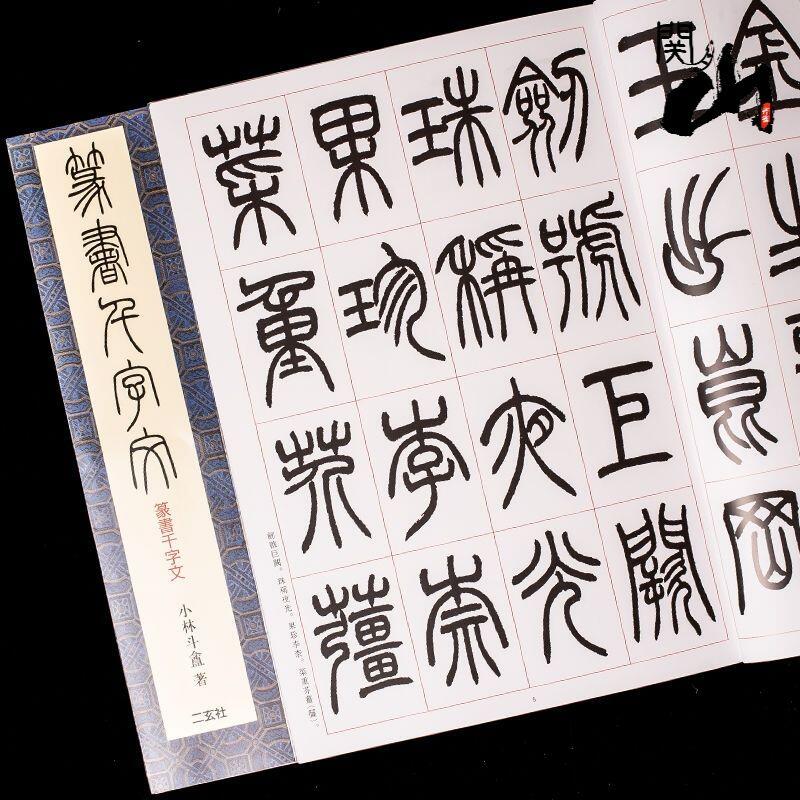 篆書千字文
篆書千字文
小林斗盦 著
二玄社
金生
玉出崑岡
劍號巨闕
珠稱夜光
果珍李柰
菜重芥薑
劍號巨闕。珠稱夜光。果珍李柰。菜重芥薑
5
関山